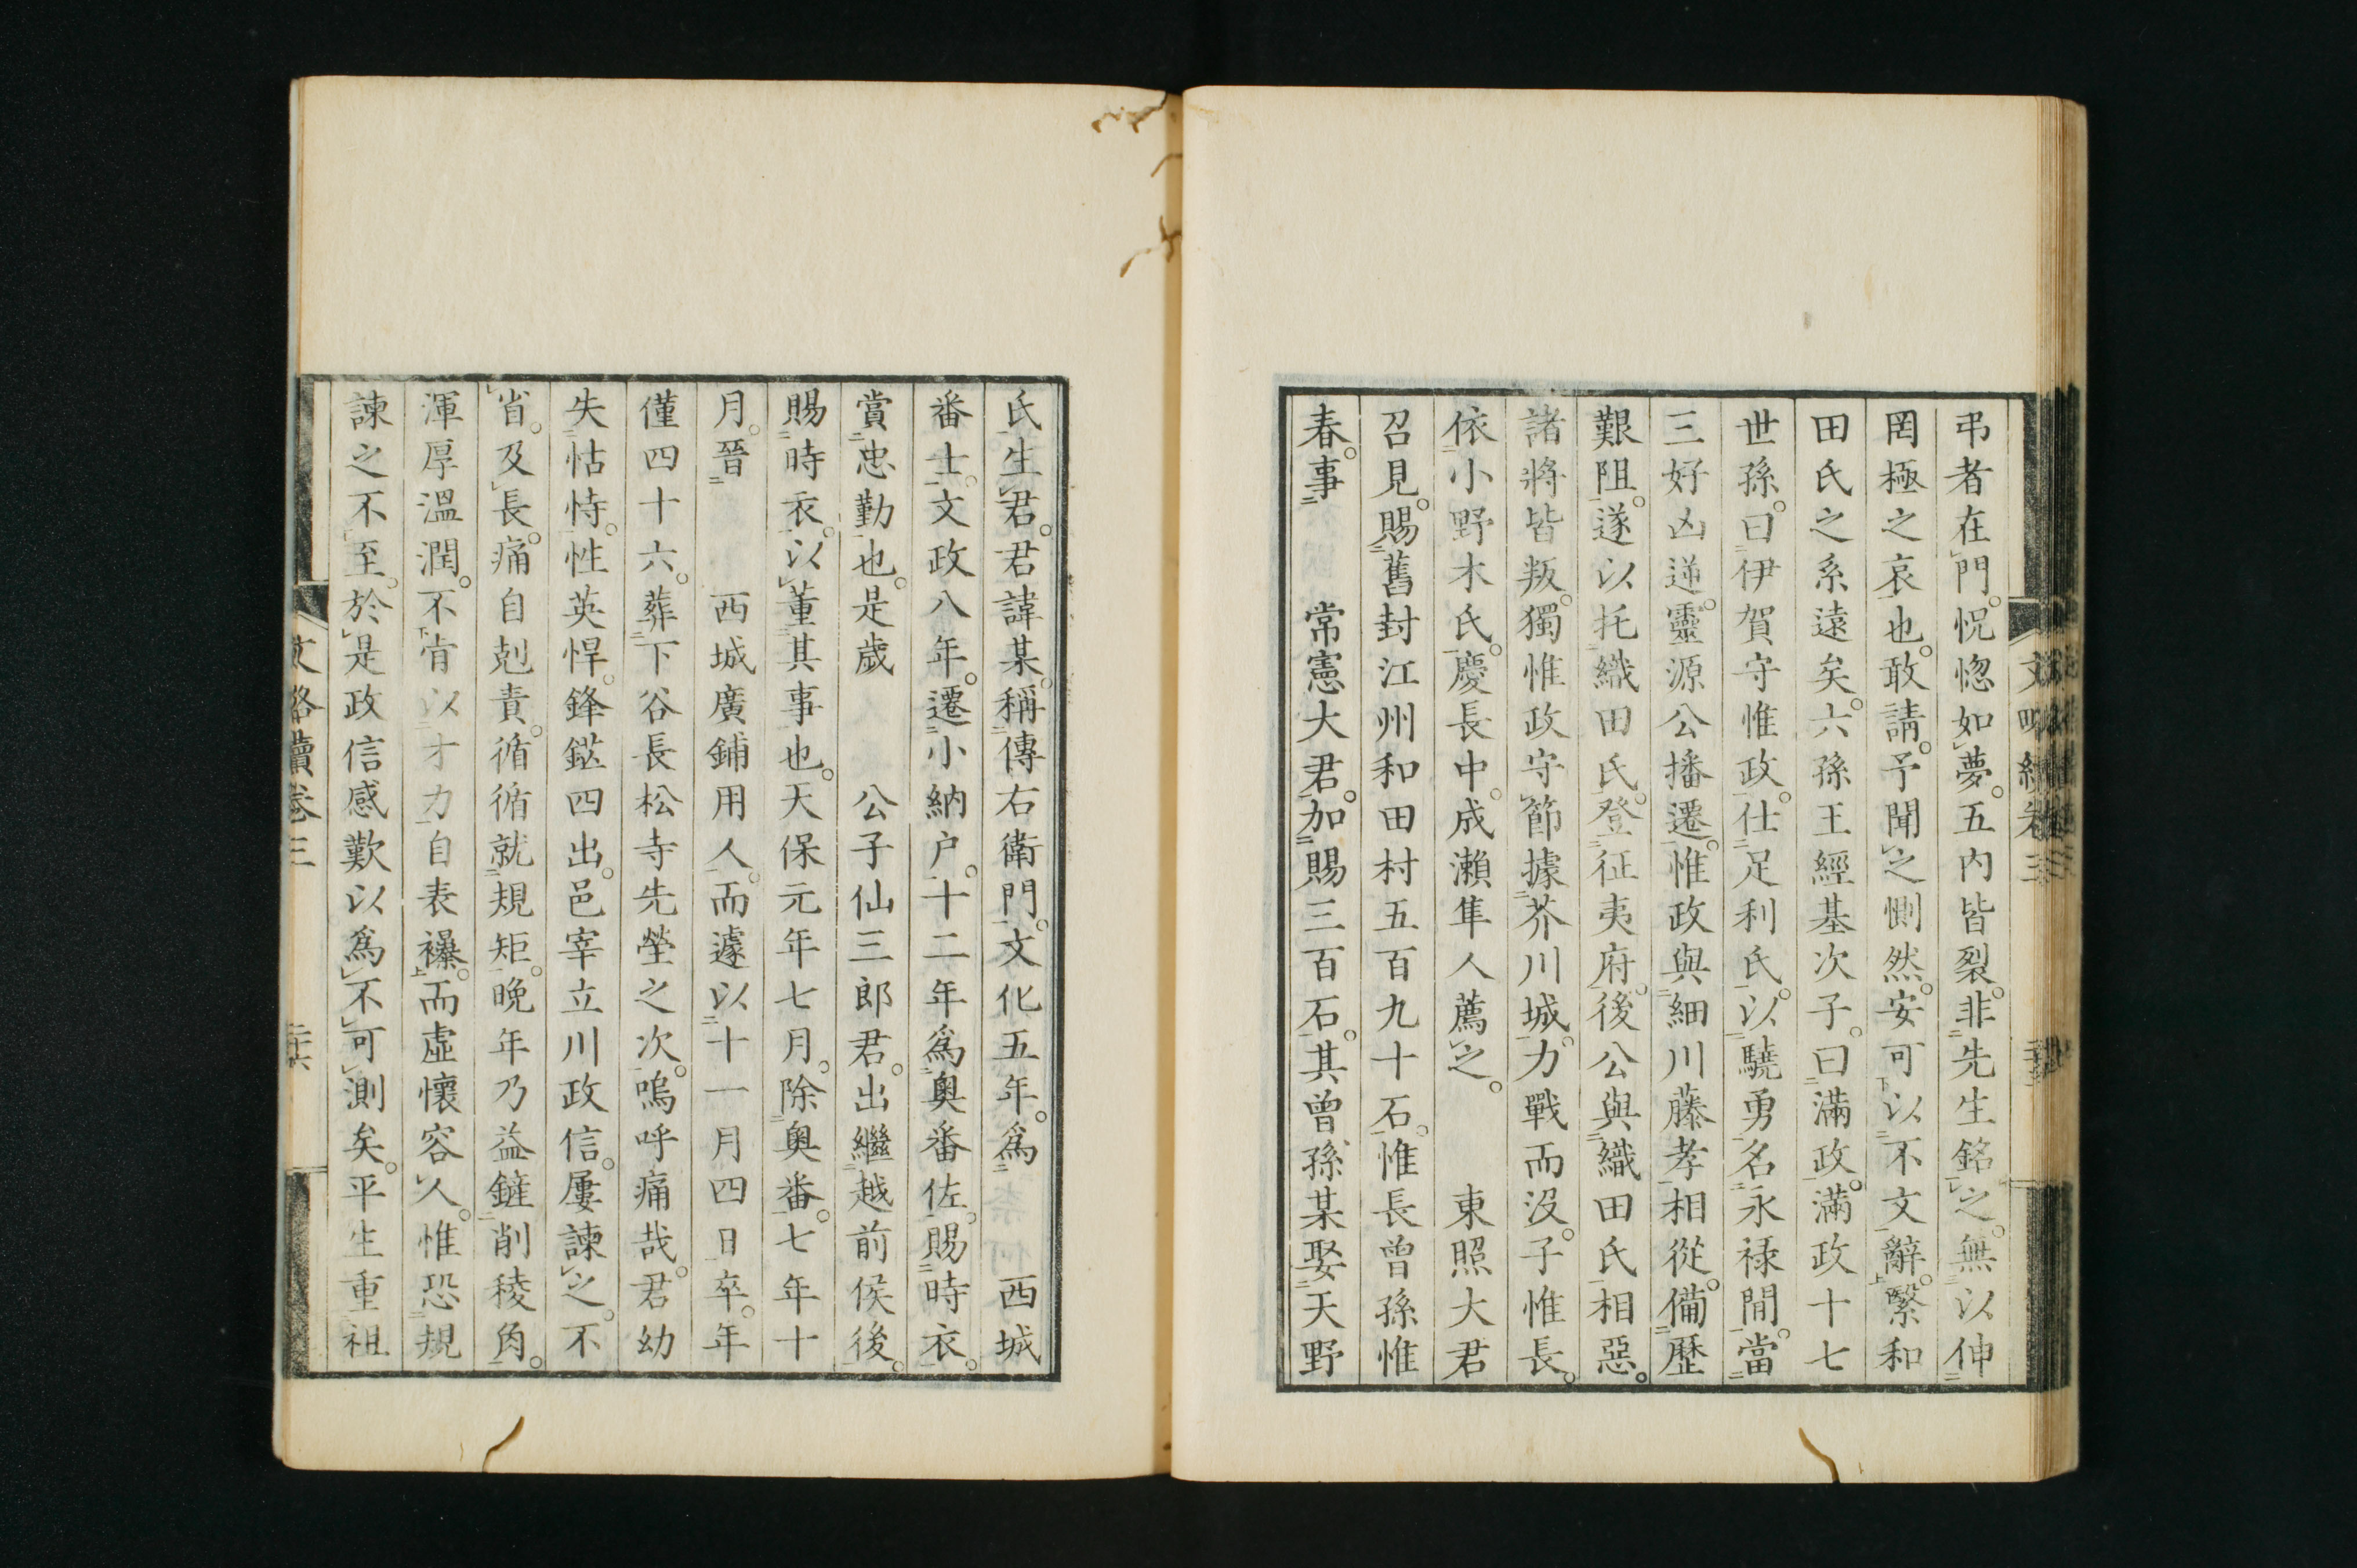 弔者在門。怳惚如夢。五内皆裂。非先生銘之。無以伸
罔極之哀也。敢請。予聞之惻然。安可以不文辭。繄和
田氏之系遠矣。六孫王經基次子。曰滿政。滿政十七
世孫。曰伊賀守惟政。仕足利氏。以驍勇名。永祿間。當
三好凶逆。靈源公播遷。惟政與細川藤孝相從。備歷
艱阻。遂以托織田氏。登征夷府。後公與織田氏相惡。
諸將皆叛。獨惟政守節據芥川城。力戰而沒。子惟長。
依小野木氏。慶長中。成瀨隼人薦之。東照大君
召見。賜舊封江州和田村五百九十石。惟長曾孫惟
春。事常憲大君。加賜三百石。其曾孫某娶天野
氏生君。君諱某。稱傳右衛門。文化五年。爲西城
番士。文政八年。遷小納戶。十二年爲奧番佐。賜時衣。
賞忠勤也。是歲公子仙三郎君。出繼越前侯後。
賜時衣。以董其事也。天保元年七月。除奧番。七年十
月。晉西城廣鋪用人。而遽以十一月四日卒。年
僅四十六。葬下谷長松寺先塋之次。嗚呼痛哉。君幼
失怙恃。性英悍。鋒鋩四出。邑宰立川政信。屢諫之。不
省。及長。痛自剋責。循循就規矩。晚年乃益鏟削稜角。
渾厚溫潤。不肯以才力自表襮。而虛懷容人。惟恐規
諫之不至。於是政信感歎以爲不可測矣。平生重祖
文略續卷三
二十六